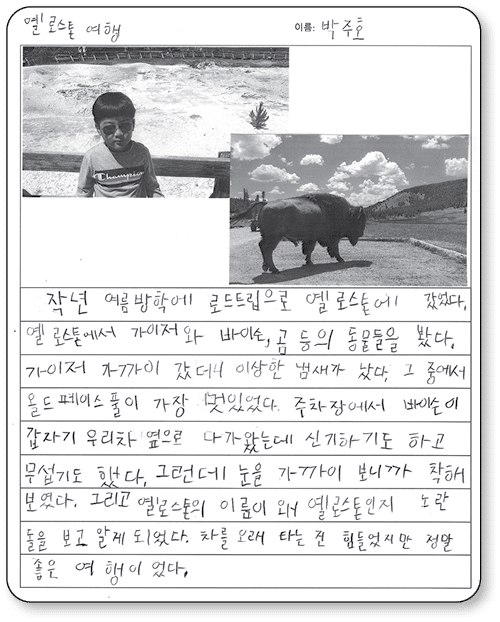 옐로스톤 여행
이름: 박주호
Champion
작년 여름방학에 로드트립으로 옐로스톤에 갔었다.
옐로스톤에서 가이저와 바이슨, 곰 등의 동물들을 봤다.
가이저 가까이 갔더니 이상한 냄새가 났다. 그 중에서
올드페이스풀이 가장 멋있었다. 주차장에서 바이슨이
갑자기 우리차 옆으로 다가왔는데 신기하기도 하고
무섭기도 했다. 그런데 눈을 가까이 보니까 착해
보였다. 그리고 옐로스톤의 이름이 왜 옐로스톤인지 노란
돌을 보고 알게 되었다. 차를 오래 타는 건 힘들었지만 정말
좋은 여행이었다.